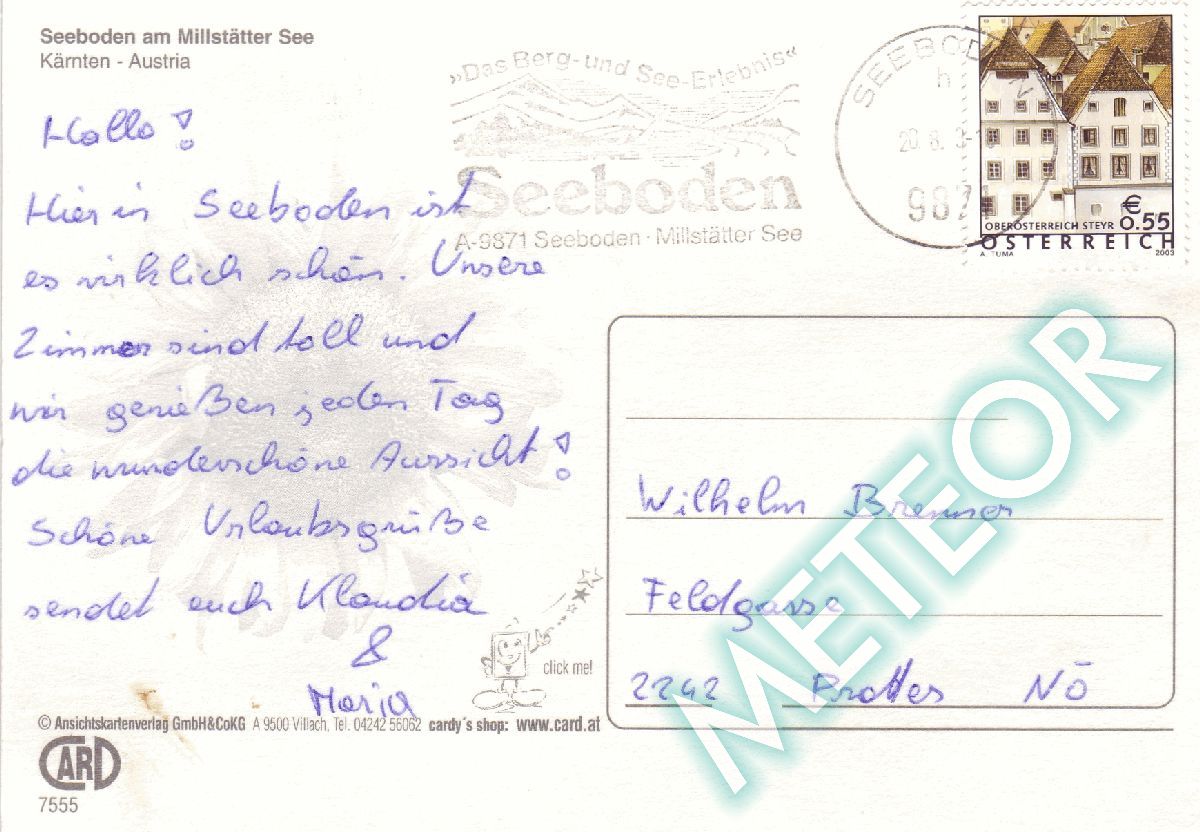 Seeboden am Millstätter See
Kärnten - Austria
»Das Berg- und See-Erlebnis«
Seeboden
A-9871 Seeboden · Millstätter See
SEEBOD
h
20. 8.
9871
€
0.55
OBERÖSTERREICH STEYR
ÖSTERREICH
A. TUMA
2003
Hallo!
Hier in Seeboden ist
es wirklich schön. Unsere
Zimmer sind toll und
wir genießen jeden Tag
die wunderschöne Aussicht!
Schöne Urlaubsgrüße
sendet euch Klaudia
&
Maria
Wilhelm Brenner
Feldgasse
2242 Prottes NÖ
METEOR
click me!
© Ansichtskartenverlag GmbH&CoKG A 9500 Villach, Tel. 04242 56062 cardy´s shop: www.card.at
CARD
7555